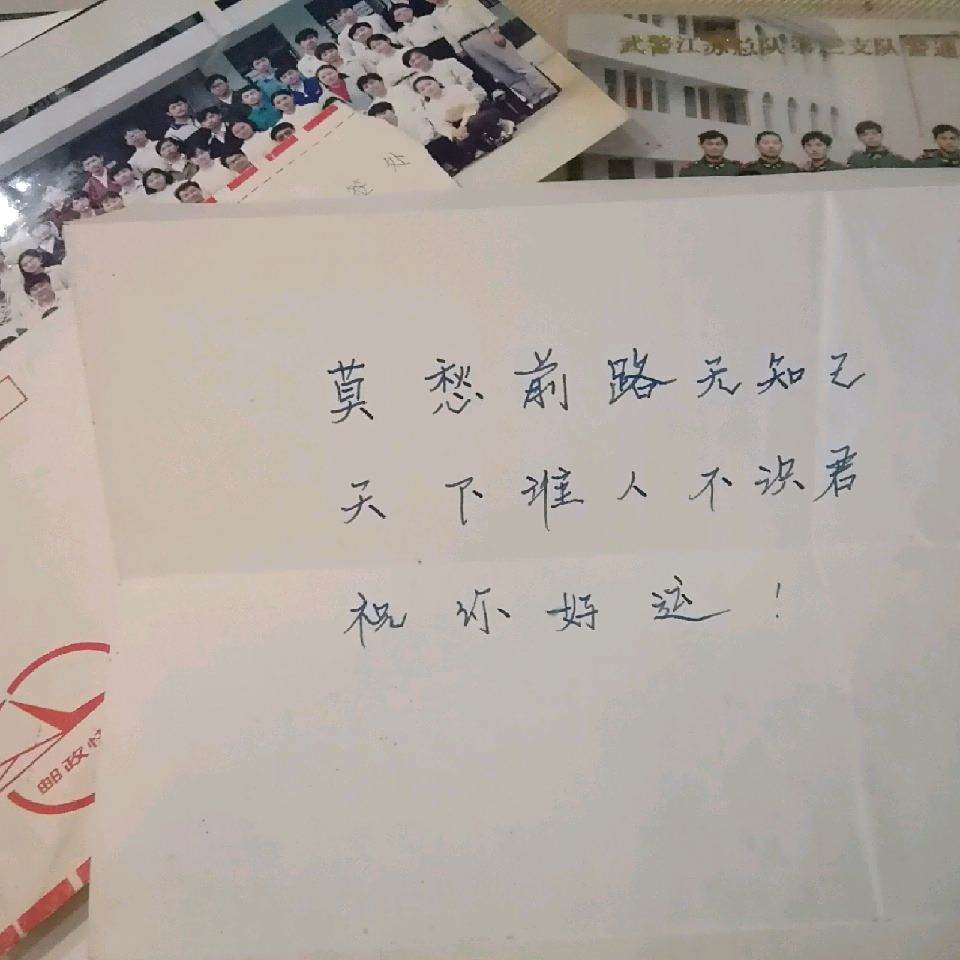 武警江苏总队第二支队警通
莫愁前路无知己
天下谁人不识君
祝你好运！
邮政快